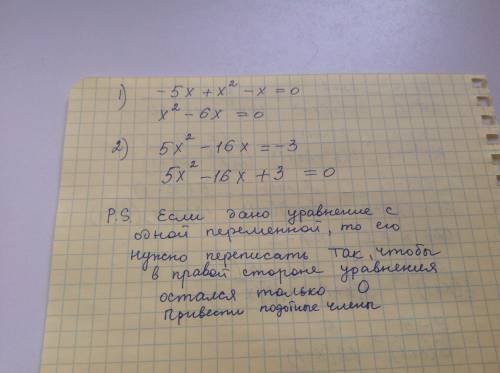 1) -5x + x² - x = 0
x² - 6x = 0
2) 5x² - 16x = -3
5x² - 16x + 3 = 0
P.S. Если дано уравнение с
одной переменной, то его
нужно переписать так, чтобы
в правой стороне уравнения
остался только 0
Привести подобные члены.